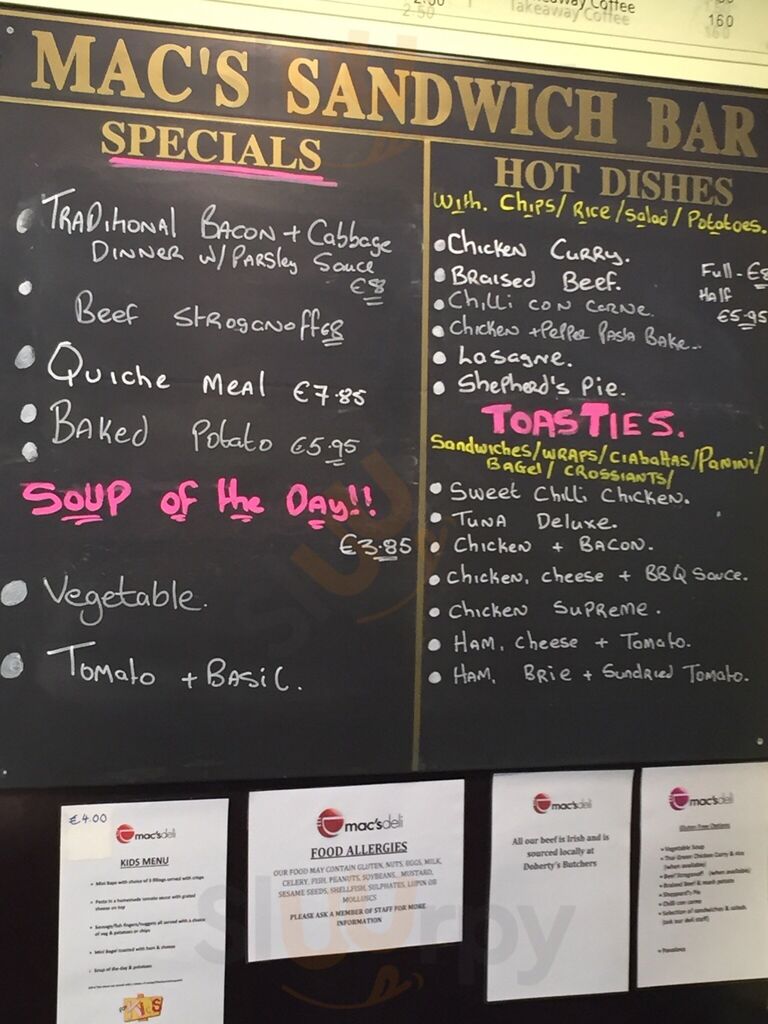 2.50
Takeaway Coffee
160
MAC'S SANDWICH BAR
SPECIALS
TRADITIONAL BACON + Cabbage
DINNER W/ PARSLEY Sauce
€8
Beef Stroganoff €8
QUICHE MEAL €7.85
BAKED Potato €5.95
SOUP of the Day!!
€3.85
Vegetable.
Tomato + BASIC.
HOT DISHES
With. Chips/ Rice/salad/ Potatoes.
Chicken Curry.
BRaised Beef.
Chilli con carne.
Chicken + Pepper Pasta Bake..
Lasagne.
Shepherd's Pie.
Full - €8
Half
€5.95
TOASTIES.
Sandwiches/WRAPS/CIABattAS/Panini/
BAGel/ CROSSIANTS/
Sweet Chilli Chicken.
TUNA Deluxe.
Chicken + BACON.
Chicken, cheese + BBQ Sauce.
Chicken Supreme.
HAM, Cheese + Tomato.
HAM, BRIE + Sundried Tomato.
€4.00
mac'sdeli
KIDS MENU
Mini Baps with choice of 3 fillings served with crisps
Pasta in a homemade tomato sauce with grated
cheese on top
Sausage/fish fingers/nuggets all served with a choice
of veg & potatoes or chips
Mini Bagel toasted with ham & cheese
Soup of the day & potatoes
KIDS
mac'sdeli
FOOD ALLERGIES
OUR FOOD MAY CONTAIN GLUTEN, NUTS, EGGS, MILK,
CELERY, FISH, PEANUTS, SOYBEANS, MUSTARD,
SESAME SEEDS, SHELLFISH, SULPHATES, LUPIN OR
MOLLUSCS
PLEASE ASK A MEMBER OF STAFF FOR MORE
INFORMATION
mac'sdeli
All our beef is Irish and is
sourced locally at
Doherty's Butchers
mac'sdeli
Gluten Free Options
Vegetable Soup
Thai Green Chicken Curry & rice
(when available)
Beef Stroganoff (when available)
Braised Beef & mash potato
Shepherd's Pie
Chilli con carne
Selection of sandwiches & salads.
(ask our deli staff)
Pavalova
Sluurpy